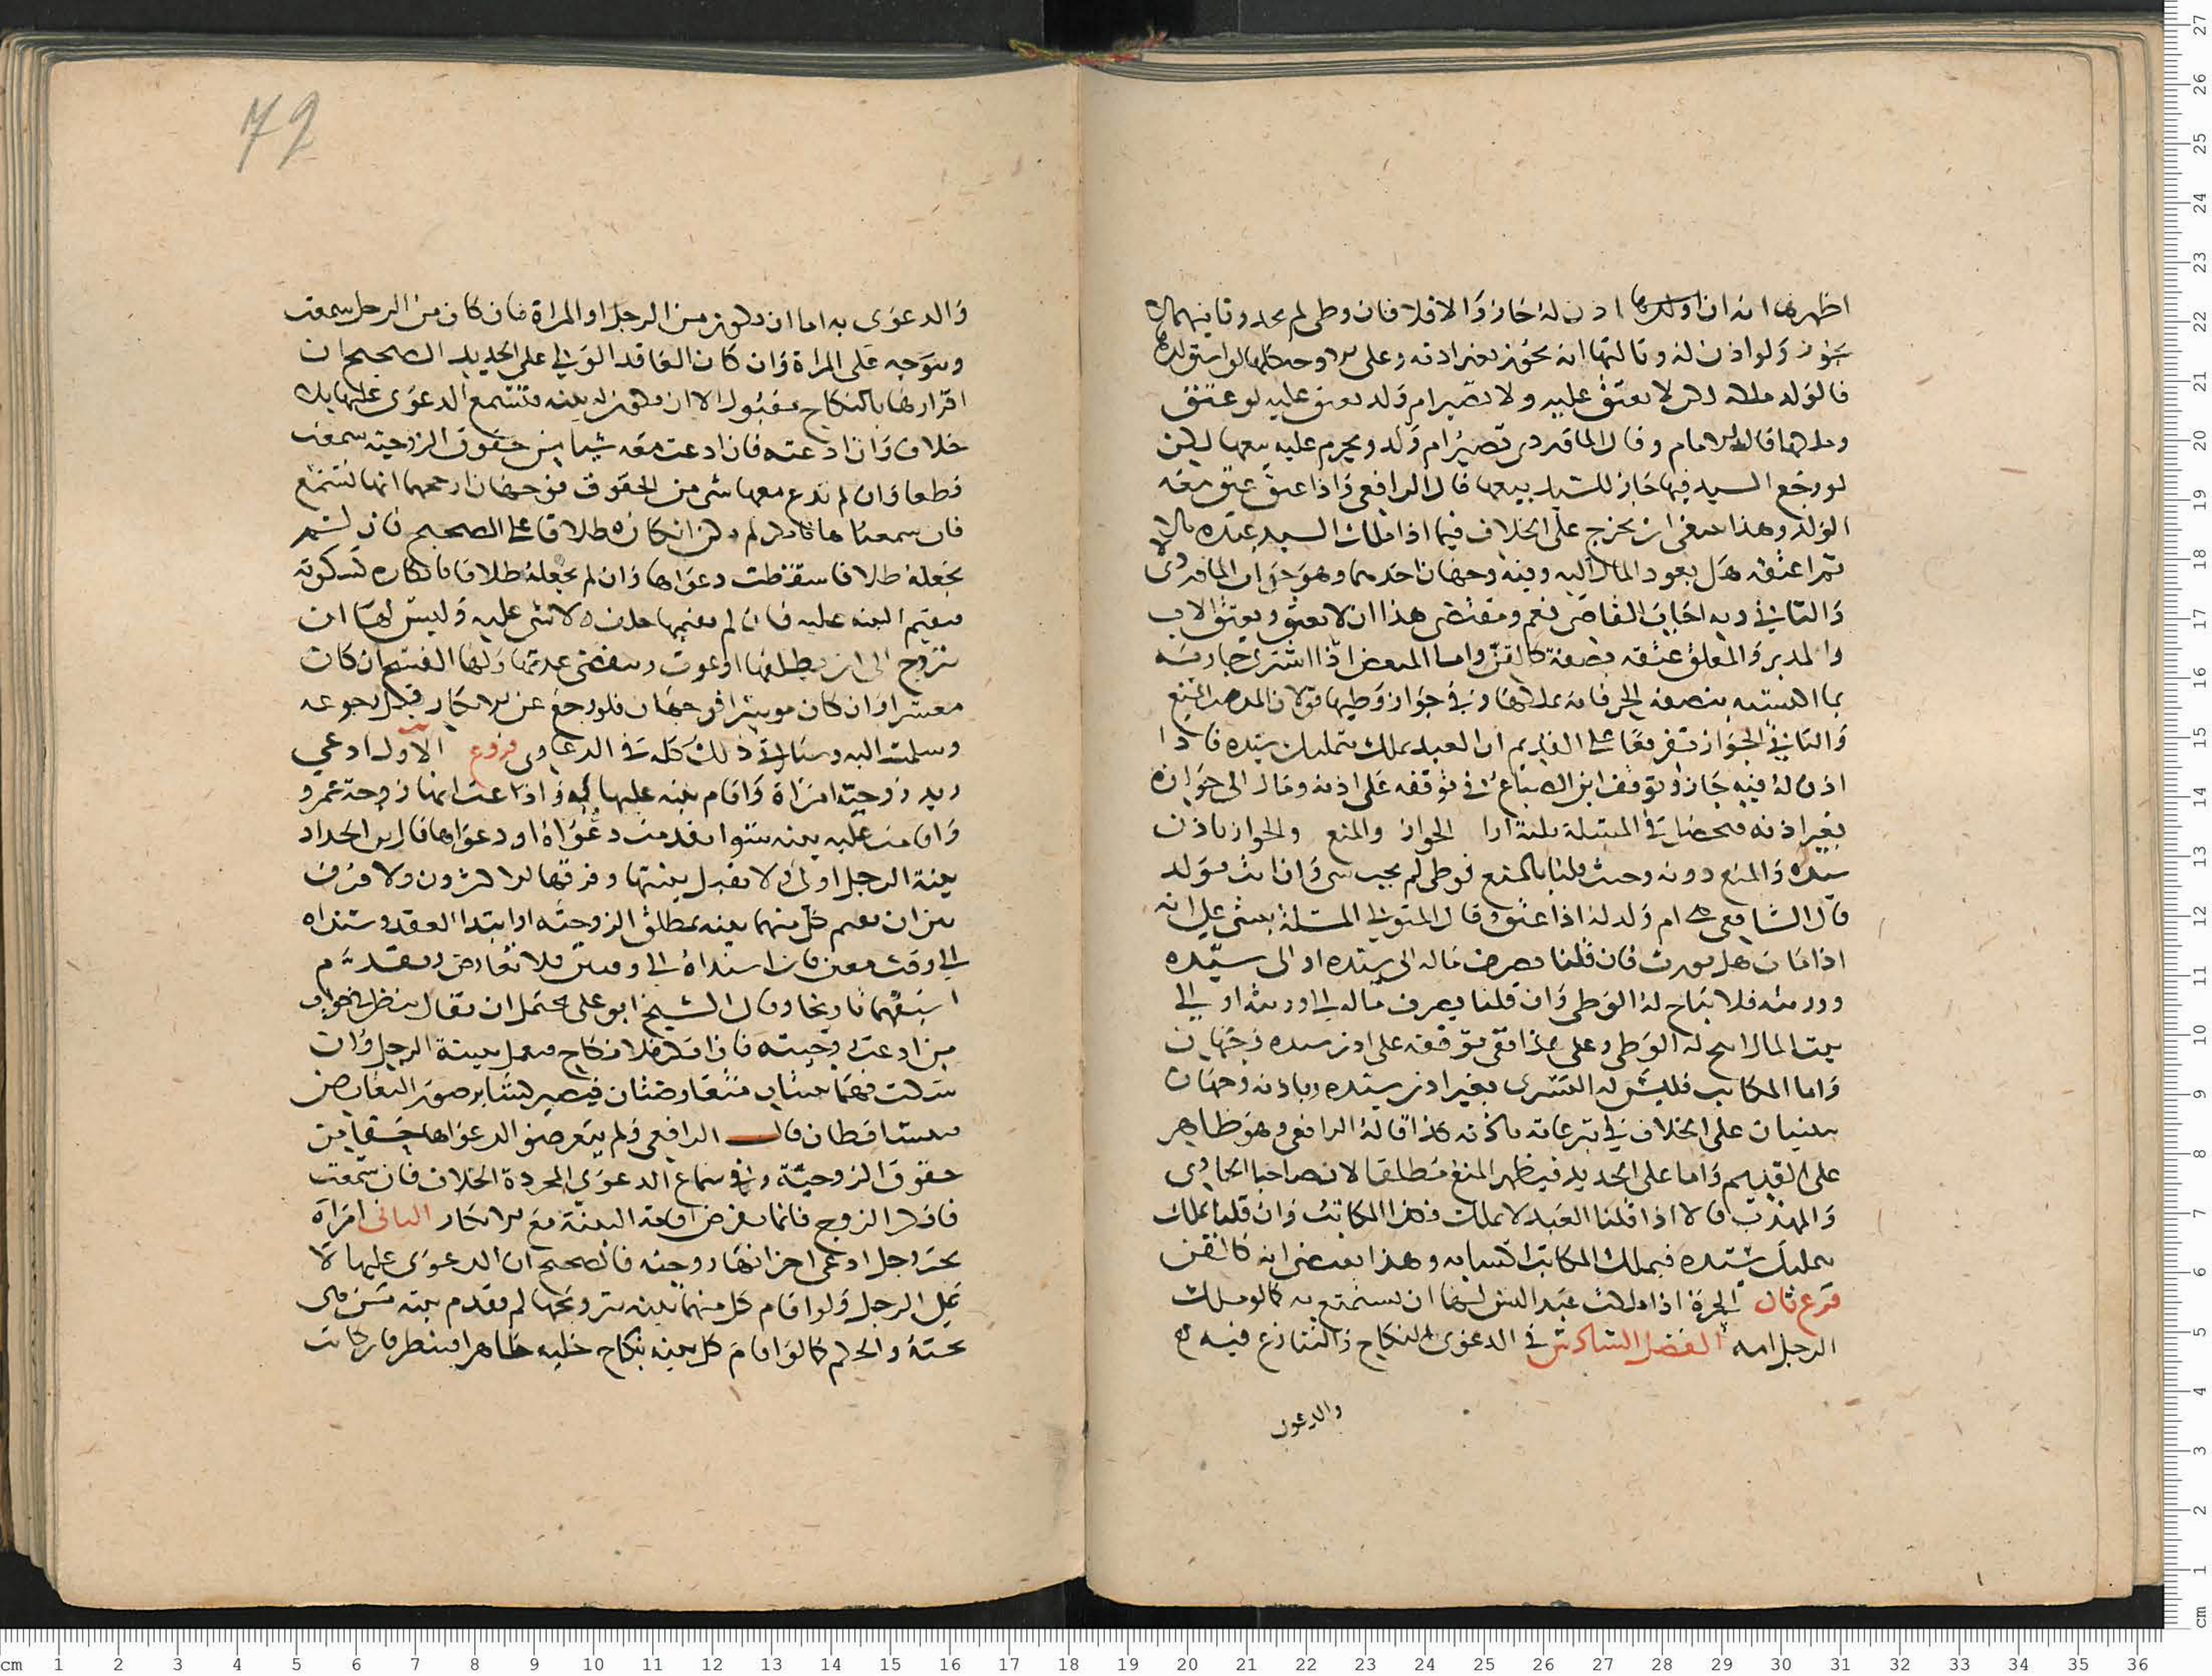 اظهرها انه ان اذن له جاز والا فلا فان وطى لم يحد وثانيهما لا
يجوز ولو اذن له وثالثها انه يجوز بغير اذنه وعلى لو استولدها
فالولد لا يعتق عليه ولا تصير ام ولد يعتق عليه لو عتق
الامام وقال الماوردى تصير ام ولد ويحرم عليه بيعها لكن
لو رجع السيد فيها جاز للسيد بيعها قال الرافعى واذا عتق عتق معه
الولد وهذا ينبغى ان يخرج على الخلاف فيما اذا ملك السيد عبده مالا
ثم اعتقه هل يعود المال اليه وفيه وجهان احدهما وهو جواب الماوردى
والثانى وبه اجاب القاضى نعم ومقتضى هذا ان لا يعتق ويعتق الاب
والمدبر والمعلق عتقه بصفة كالقن واما المبعض اذا اشترى جارية
بما اكتسبه بنصفه الحر فانه يملكها وفى جواز وطيها قولان المنع
والثانى الجواز تفريعا على القديم ان العبد يملك بتمليك سيده فاذا
اذن له فيه جاز وتوقف ابن الصباغ فى توقفه على اذنه ومال الى جوازه
بغير اذنه فحصل فى المسئلة ثلثة ارا الجواز والمنع والجواز باذن
سيده والمنع دونه وحيث قلنا بالمنع فوطى لم يجب شى وان اتت بولد
قال الشافعى ام ولد له اذا عتق وقال المتولى المسئلة تبنى على انه
اذا مات هل يورث فان قلنا يصرف ماله الى سيده او الى سيده
وورثته فلا يباح له الوطى وان قلنا يصرف ماله الى ورثته او الى
بيت المال ابيح له الوطى وعلى هذا ففى توقفه على اذن سيده وجهان
واما المكاتب فليس له التسرى بغير اذن سيده وباذنه وجهان
مبنيان على الخلاف فى تبرعاته باذنه كذا قاله الرافعى وهو ظاهر
على القديم واما على الجديد فيظهر المنع مطلقا لان صاحبا الحاوى
والمهذب قالا اذا قلنا العبد لا يملك فكذا المكاتب وان قلنا يملك
بتمليك سيده فيملك المكاتب اكسابه وهذا يقتضى انه كالقن
فرع ثان الحرة اذا ملكت عبدا ليس لها ان يستمتع به كما لو ملك
الرجل امه الفصل السادس فى الدعوى بالنكاح والتنازع فيه
والدعوى
72
والدعوى به اما ان تكون من الرجل او المراة فان كان من الرجل سمعت
وتتوجه على المراة وان كان العاقد الولى على الجديد الصحيح ان
اقرارها بالنكاح مقبول الا ان تكون له بينة فتسمع الدعوى عليها بلا
خلاف وان ادعته فان ادعت معه شيا من حقوق الزوجية سمعت
قطعا وان لم تدع معها شى من الحقوق فوجهان ارجحهما انها تسمع
فان سمعناها فانكر لم يكن انكاره طلاقا على الصحيح فان لم
نجعله طلاقا سقطت دعواها وان لم نجعله طلاقا فانكاره كسكوته
فتقيم البينة عليه فان لم تقمها حلف ولا شى عليه وليس لها ان
تتزوج الى ان يطلقها او يموت وينقضى عدتها ولها الفسخ ان كان
معسرا وان كان موسرا فوجهان فلو رجع عن الانكار قبل رجوعه
وسلمت اليه وسياتى ذلك كله فى الدعاوى فروع الاول ادعى
زيد زوجية امراة واقام بينة عليها به واذا ادعت انها زوجة عمرو
واقامت عليه بينة سوا تقدمت دعواه او دعواها قال ابن الحداد
بينة الرجل اولى ولا تقبل بينتها وفرقها الاكثرون ولا فرق
بين ان تقيم كل منهما بينة بمطلق الزوجية او ابتدا العقد وسنداه
الى وقت معين فان اسنداه الى وقتين فلا تعارض ويقدم
اسبقهما تاريخا وقال الشيخ ابو على يحتمل ان تقال ننظر جواب
من ادعت زوجيته فان انكر فلا نكاح فيعمل ببينة الرجل وان
سكت فهما بينتان متعارضتان فيصير كسائر صور التعارض
فيتساقطان قال الرافعى ولم يتعرضوا لدعواها حقا من
حقوق الزوجية وفى سماع الدعوى المجردة الخلاف فان سمعت
فانكر الزوج فانما يفرض اقامة البينة مع الانكار الثانى امراة
تحت رجل ادعى اخر انها زوجته فالصحيح ان الدعوى عليها لا
على الرجل ولو اقام كل منهما بينة بتزويجها لم يقدم بينة من هى
تحته والحكم كما لو اقام كل بينة بنكاح خلية ظاهرا فينظر فان كانت